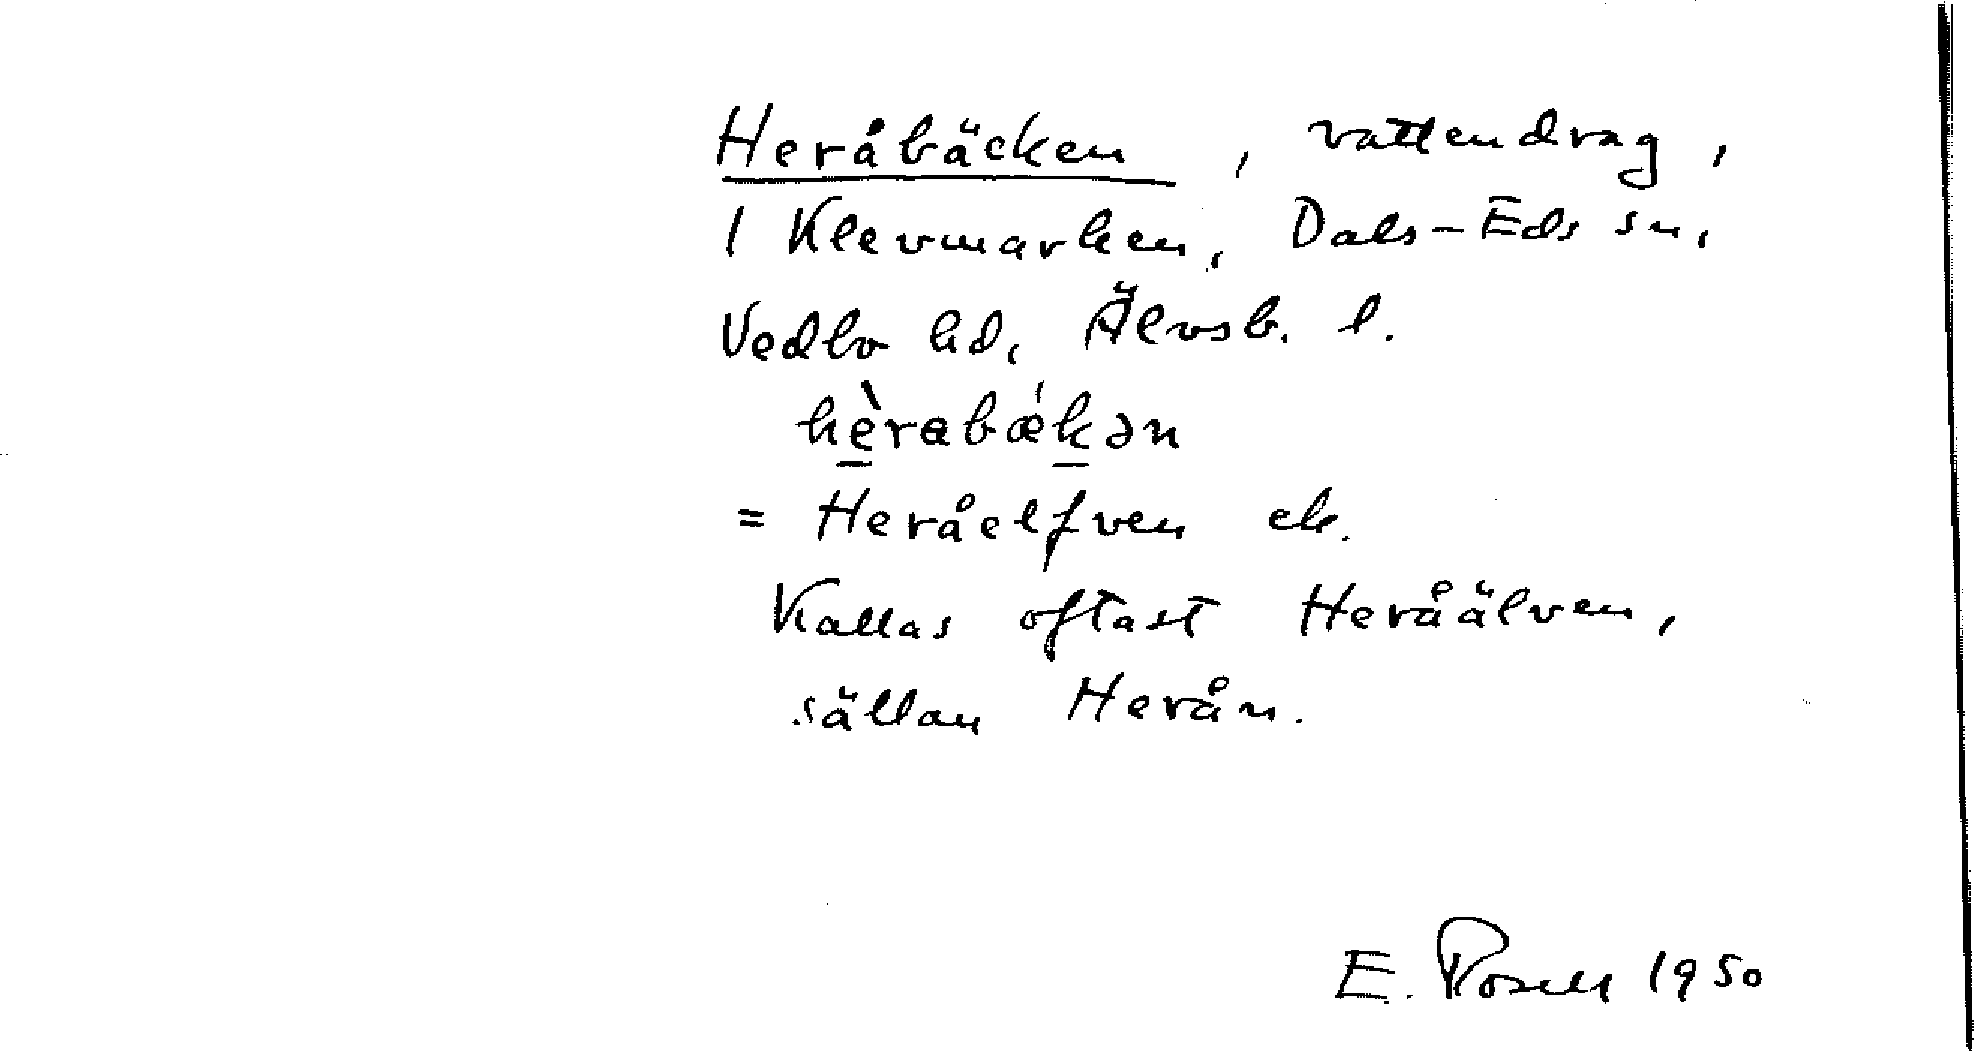 Heråbäcken, vattendrag,
I Klevmarken, Dals-Eds sn,
Vedbo hd, Älvsb. l.
hèrabǽkən
= Heråelfven ek.
Kallas oftast Heråälven,
sällan Herån.
E. Rosell 1950